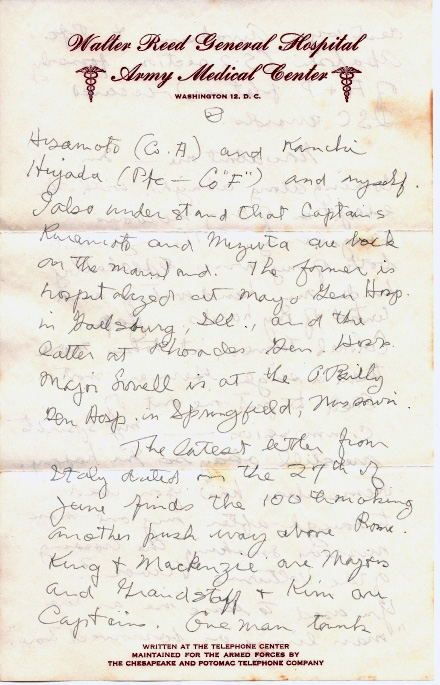 Walter Reed General Hospital
Army Medical Center
WASHINGTON 12, D. C.
2
Hisamoto (Co. A) and Kanchi
Hiyada (Pfc — Co "F") and myself.
I also understand that Captains
Kuramoto and Mizuta are back
on the mainland. The former is
hospitalized at Mayo Gen Hosp.
in Galesburg, Ill., and the
latter at Rhoades Gen Hosp.
Major Lovell is at the O'Reilly
Gen Hosp. in Springfield, Missouri.
The latest letter from
Italy dated on the 27th of
June finds the 100th making
another push way above Rome.
King & Mackenzie are Majors
and Grandstaff & Kim are
Captains. One man tanks
WRITTEN AT THE TELEPHONE CENTER
MAINTAINED FOR THE ARMED FORCES BY
THE CHESAPEAKE AND POTOMAC TELEPHONE COMPANY